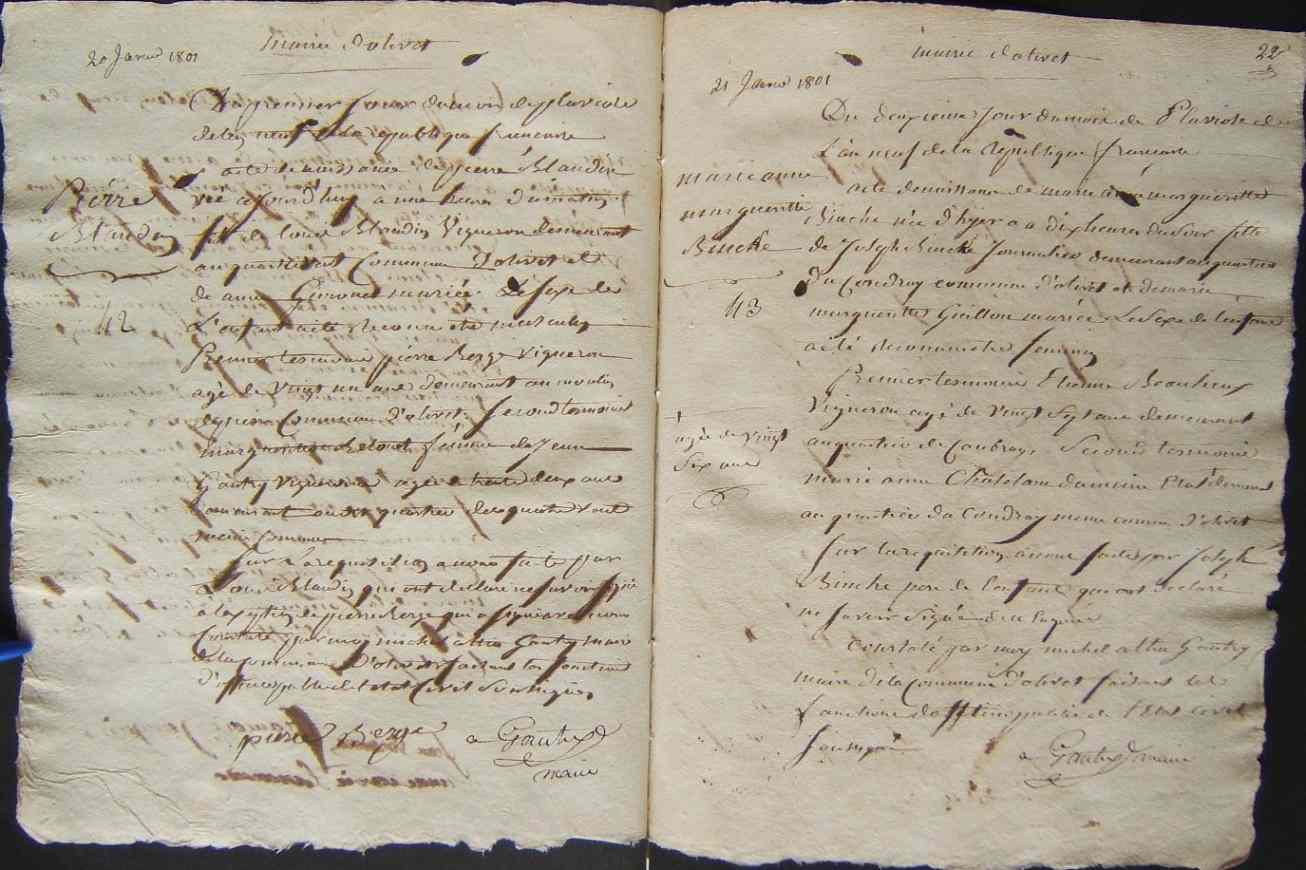 20 Janvier 1801
mairie d'olivet
Du premier Jour du mois de pluviose
de l'an neuf de la republique francaise
acte de naissance de pierre Blaudin
né cejourd'huy a une heure du matin
Pierre
Blaudin
42
fils de Louis Blaudin Vigneron demeurant
au quartier commune d'olivet et
de anne mariés. Le sexe de
L'enfant a été reconnu etre masculin
Premier temoin pierre Berge Vigneron
agé de Vingt un ans demeurant au moulin
commune d'olivet. Second temoin
femme de Jean
Gautry Vigneron agée de trente deux ans
demeurant quartier des quatre vents
meme commune
Sur la requisition a nous faite par
Louis Blaudin qui ont declaré ne savoir signé
a l'exception de pierre Berge qui a signé avec nous
Constaté par moy michel Gautry maire
de la commune d'olivet faisant les fonctions
d'officier public de l'etat Civil Soussigné
piere Berge
a Gautry
maire
mairie d'olivet
22
21 Janvier 1801
Du deuxieme Jour du mois de Pluviose de
L'an neuf de la République francaise
acte de naissance de marie anne margueritte
marie anne
margueritte
Binche
43
Binche née d'hyer a dix heures du soir fille
de Joseph Binche Journalier demeurant au quartier
du Coudray commune d'olivet et de marie
margueritte Guillon mariés. Le sexe de l'enfant
a été reconnu etre feminin
Premier temoin Etienne Beaulieux
Vigneron agé de Vingt Sept ans demeurant
au quartier de Coudray. Second temoin
agée de Vingt
Six ans
marie anne Chatelain demeurant
au quartier du Coudray meme commune d'olivet
Sur la requisition a nous faite par Joseph
Binche pere de l'enfant qui ont declaré
ne savoir Signé de ce requis
Constaté par moy michel Gautry
maire de la Commune d'olivet faisant les
fonctions d'officier public de l'Etat civil
Soussigné
a Gautry maire